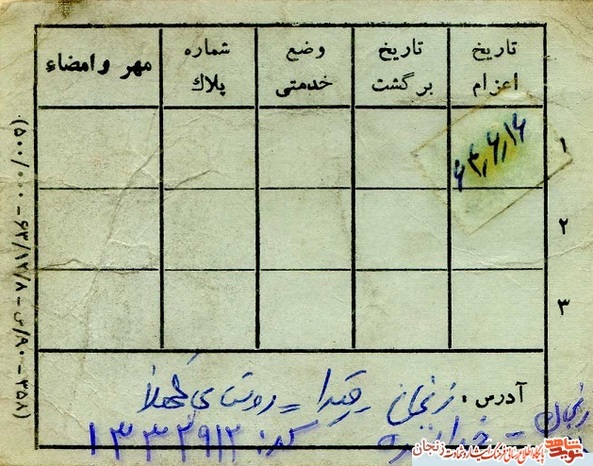 تاریخ اعزام
تاریخ برگشت
وضع خدمتی
شماره پلاك
مهر و امضاء
۱
۶۳٫۶٫۱۶
۲
۳
آدرس : زنجان _ قیدار = روستای کهلا
زنجان _ خدابنده کد: ۱۳۳۲۹۱۲
(۳۵۸ - ۹۰/س - ۶۳/۱۲/۸ - ۵۰۰/۰۰۰)
نوید شاهد
پایگاه اطلاع رسانی فرهنگ ایثار و شهادت
زنجان